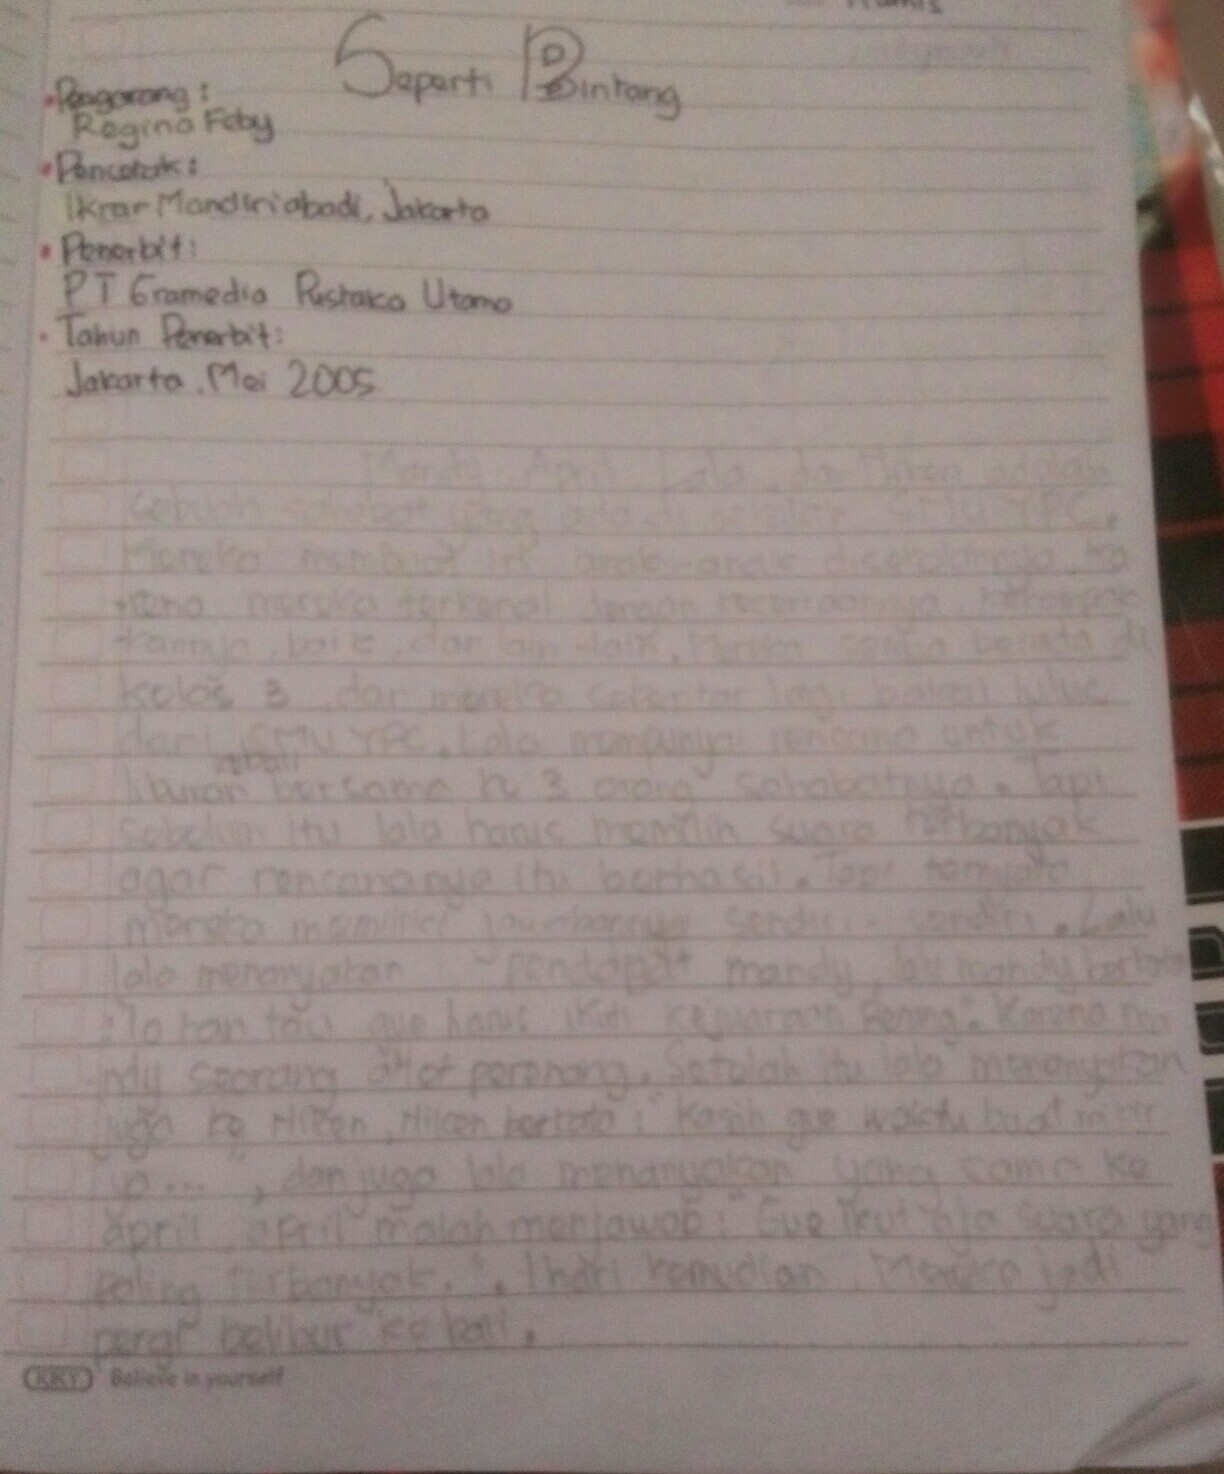 Seperti Bintang
Pengarang:
Regina Feby
Pencetak:
Ikrar Mandiriabadi, Jakarta
Penerbit:
PT Gramedia Pustaka Utama
Tahun Penerbit:
Jakarta, Mei 2005
Mandy, April, Lala, dan Niken adalah
sebuah sahabat yang ada di sekolah SMU YPC.
Mereka membuat iri anak-anak disekolahnya, ka
rena mereka terkenal dengan keceriaannya, kekompak
kannya, baik, dan lain-lain. Mereka berada di
kelas 3, dan mereka sebentar lagi bakal lulus
dari SMU YPC. Lala mempunyai rencana untuk
kebali
liburan bersama ke 3 orang sahabatnya. Tapi
sebelum itu lala harus memilih suara terbanyak
agar rencananya itu berhasil. Tapi ternyata
mereka memiliki jawabannya sendiri-sendiri. Lalu
lala menanyakan pendapat mandy, lalu mandy berkata
: "lo kan tau gue harus ikut kejuaraan Renang". Karena ma
ndy seorang atlet perenang. Setelah itu lala menanyakan
juga ke Niken, Niken berkata: "Kasih gue waktu buat mikir
ya...", dan juga lala menanyakan yang sama ke
april, april malah menjawab: "Gue ikut aja suara yang
paling terbanyak.". 1 hari kemudian, Mereka jadi
pergi belibur ke bali.
KKY Believe in yourself